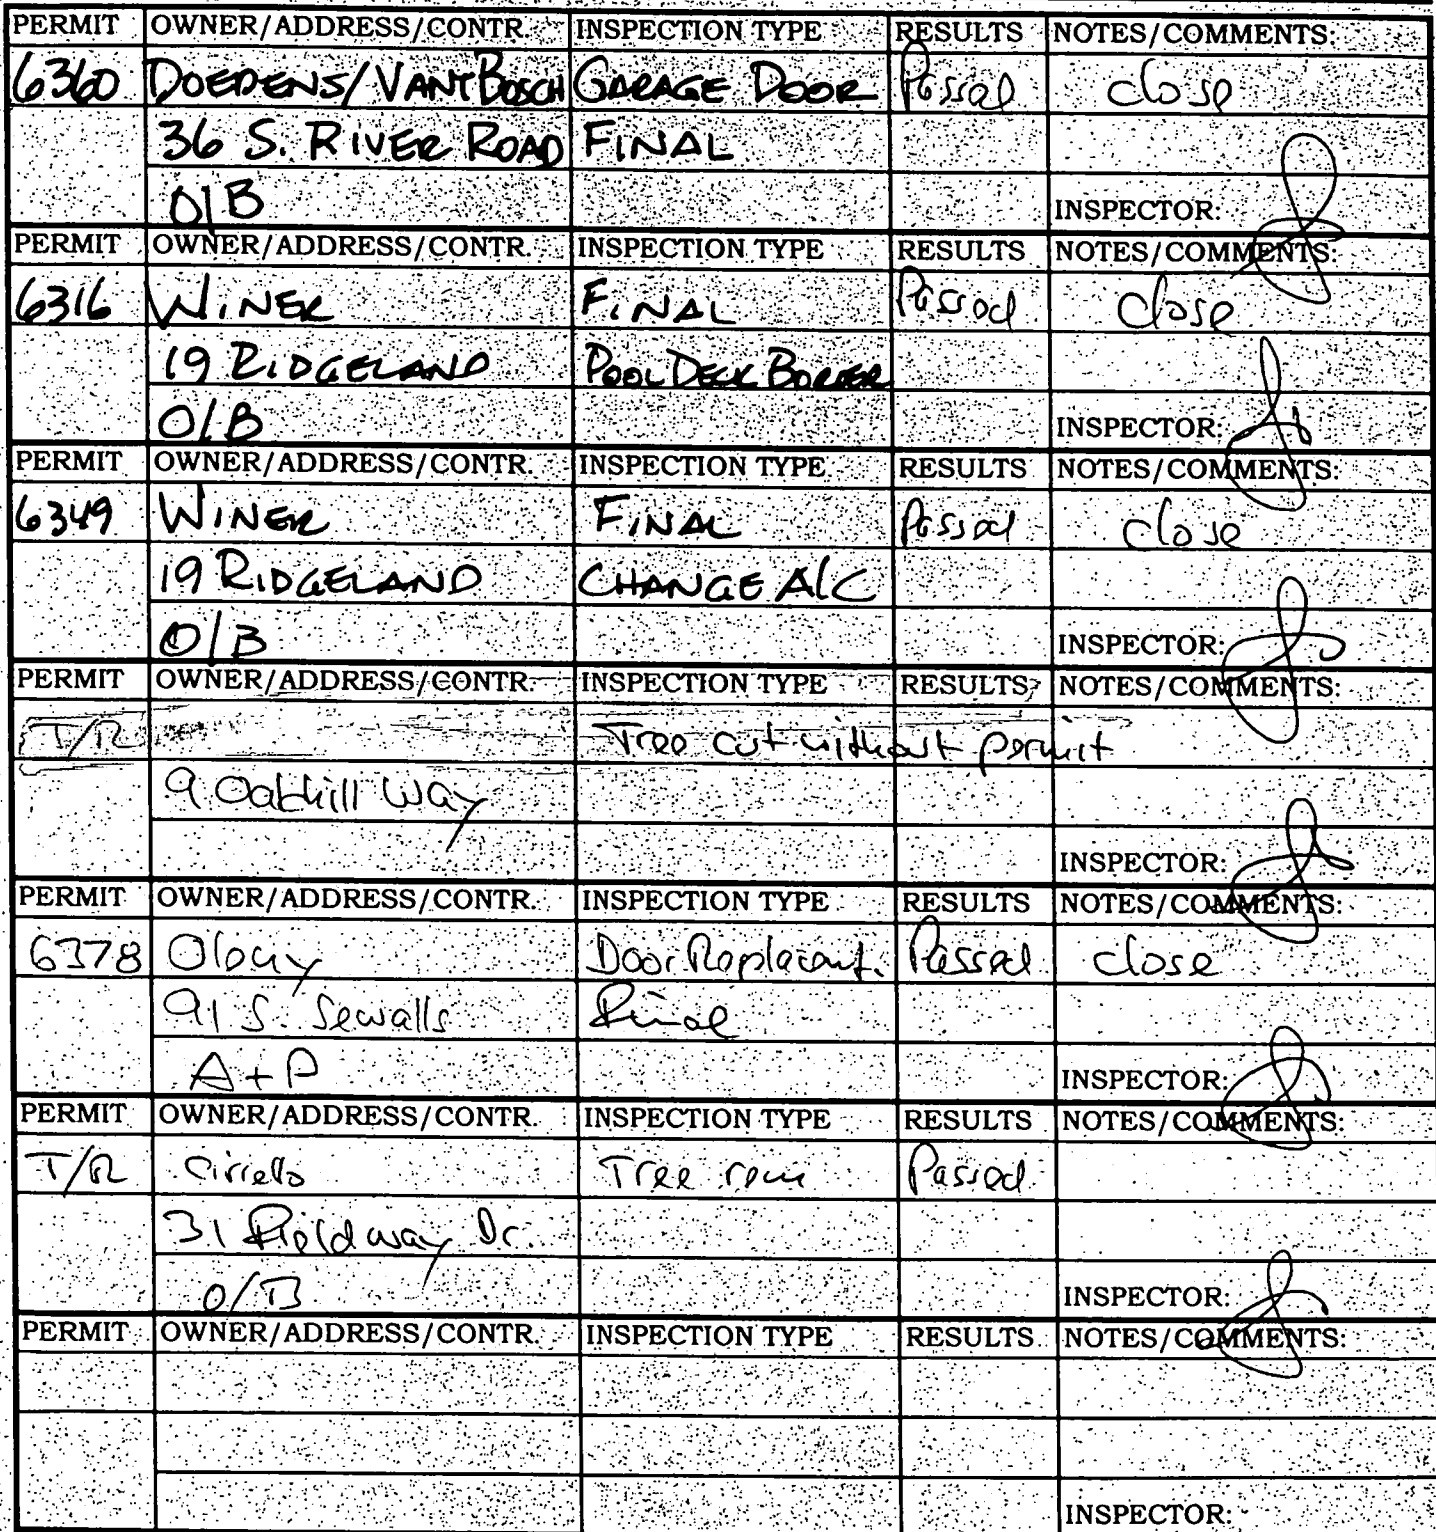 PERMIT OWNER/ADDRESS/CONTR. INSPECTION TYPE RESULTS NOTES/COMMENTS:
6360 DOEDENS/VANTBOSCH GARAGE DOOR Passed close
36 S. RIVER ROAD FINAL
O/B INSPECTOR:
PERMIT OWNER/ADDRESS/CONTR. INSPECTION TYPE RESULTS NOTES/COMMENTS:
6316 WINER FINAL Passed close
19 RIDGELAND POOL DECK BORDER
O/B INSPECTOR:
PERMIT OWNER/ADDRESS/CONTR. INSPECTION TYPE RESULTS NOTES/COMMENTS:
6349 WINER FINAL Passed close
19 RIDGELAND CHANGE A/C
O/B INSPECTOR:
PERMIT OWNER/ADDRESS/CONTR. INSPECTION TYPE RESULTS NOTES/COMMENTS:
T/R Tree cut without permit
9 Oakhill Way
INSPECTOR:
PERMIT OWNER/ADDRESS/CONTR. INSPECTION TYPE RESULTS NOTES/COMMENTS:
6378 Door Replacemt. Passed close
91 S. Sewalls Final
A+P INSPECTOR:
PERMIT OWNER/ADDRESS/CONTR. INSPECTION TYPE RESULTS NOTES/COMMENTS:
T/R Cirrello Tree rem Passed
31 Fieldway Dr.
O/B INSPECTOR:
PERMIT OWNER/ADDRESS/CONTR. INSPECTION TYPE RESULTS NOTES/COMMENTS:
INSPECTOR: